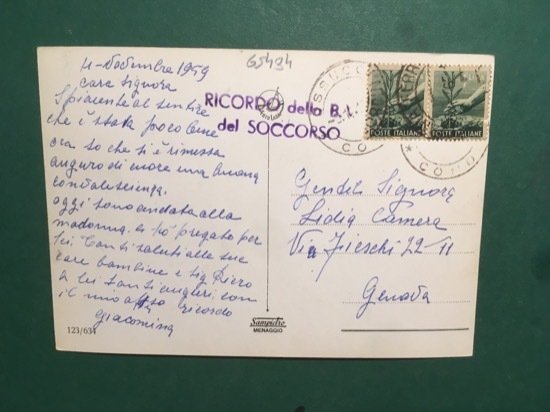 4-Dodembre 1959
cara Signora
Spiacente al sentire
che è stata poco bene
ora so che si è rimessa
auguro di cuore una buona
convalescienza.
oggi sono andata alla
madonna e ho pregato per
lei tanti saluti alle sue
care bambine e sig Piero
a lei tanti auguri con
il mio ricordo
Giacomina
123/634
65494
RICORDO della B. V.
del SOCCORSO
POSTE ITALIANE
POSTE ITALIANE
COMO
Gentil Signora
Lidia Camera
Via Fieschi 22-11
Genova
Sampietro
MENAGGIO